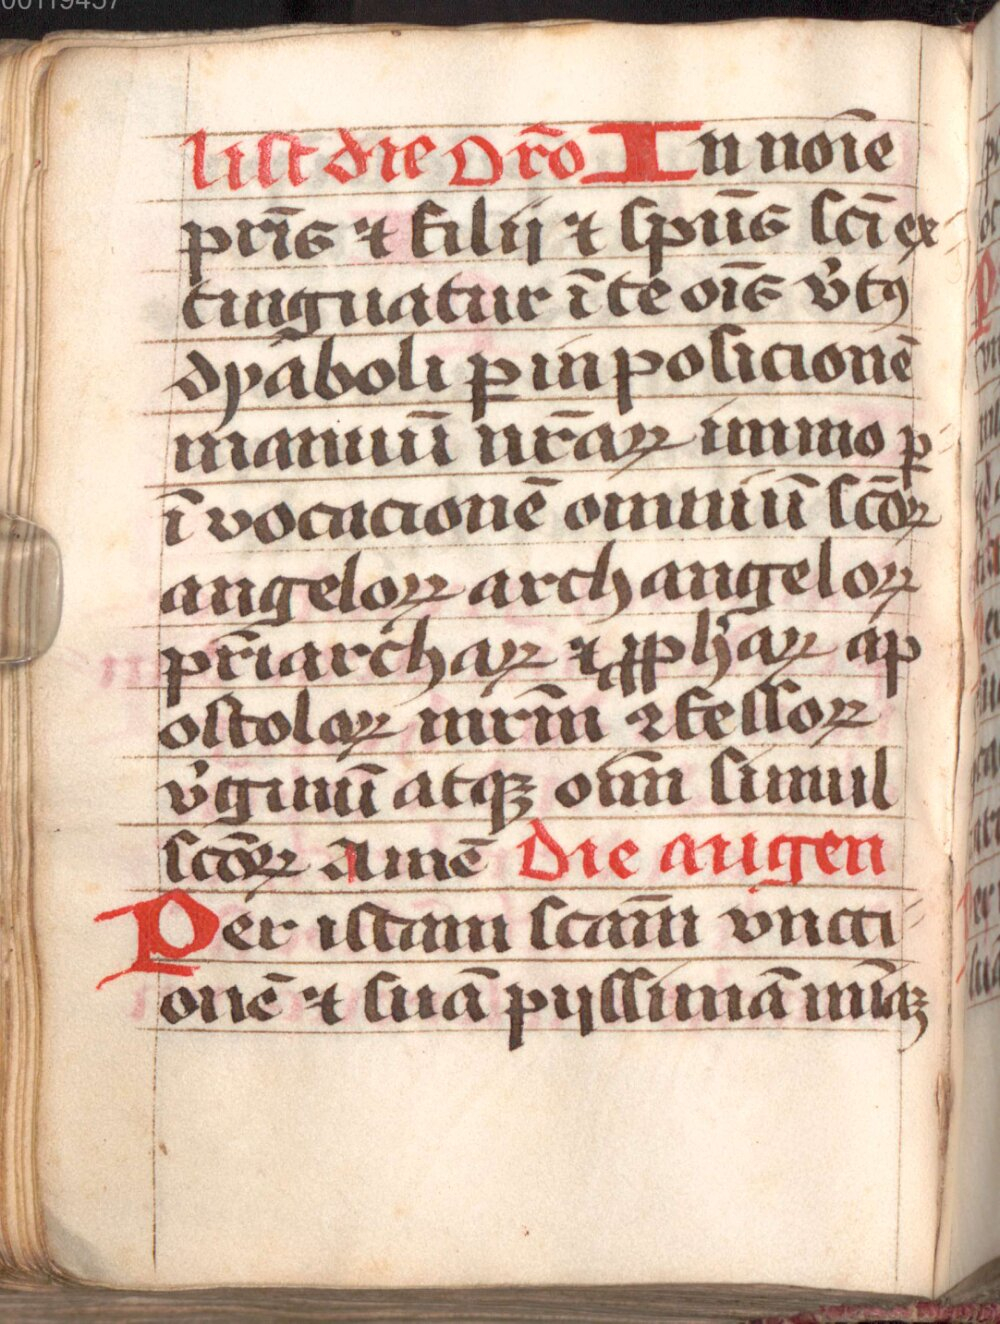 00119457
list die Oro̅ In noi̅e
pri̅s ⁊ filij ⁊ spu̅s sci̅ ex
tinguatur i̅ te oi̅s v̾tꝰ
dyaboli ꝑ inposicione̅
manuu̅ nr̅aꝝ immo ꝑ
i̅vocacione̅ omniu̅ sco̅ꝝ
angeloꝝ archangeloꝝ
pr̅iarchaꝝ ⁊ ꝓph̾aꝝ ap
ostoloꝝ mr̅m ꝯfessoꝝ
v̾ginu̅ atqꝫ om̅ simul
sco̅ꝝ Ame̅ Die augen
Per istam scam̅ vncti
one̅ ⁊ sua̅ pijssima̅ mi̅aꝫ